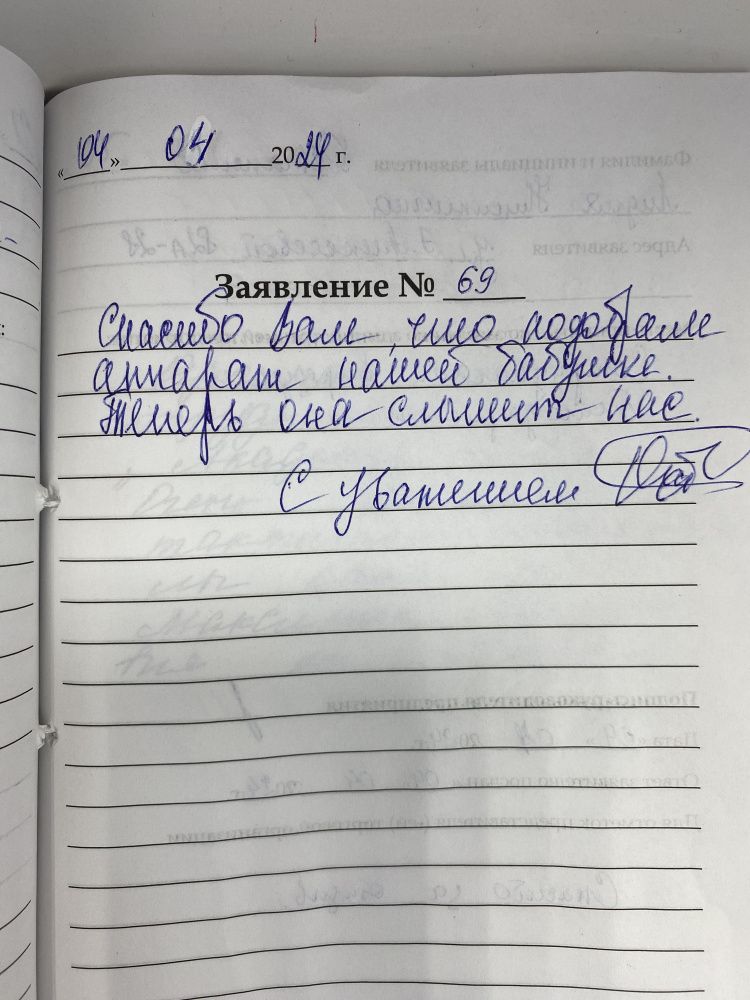 «04» 04 2024 г.
Заявление № 69
Спасибо вам, что подобрали
аппарат нашей бабушке.
Теперь она слышит нас.
С уважением